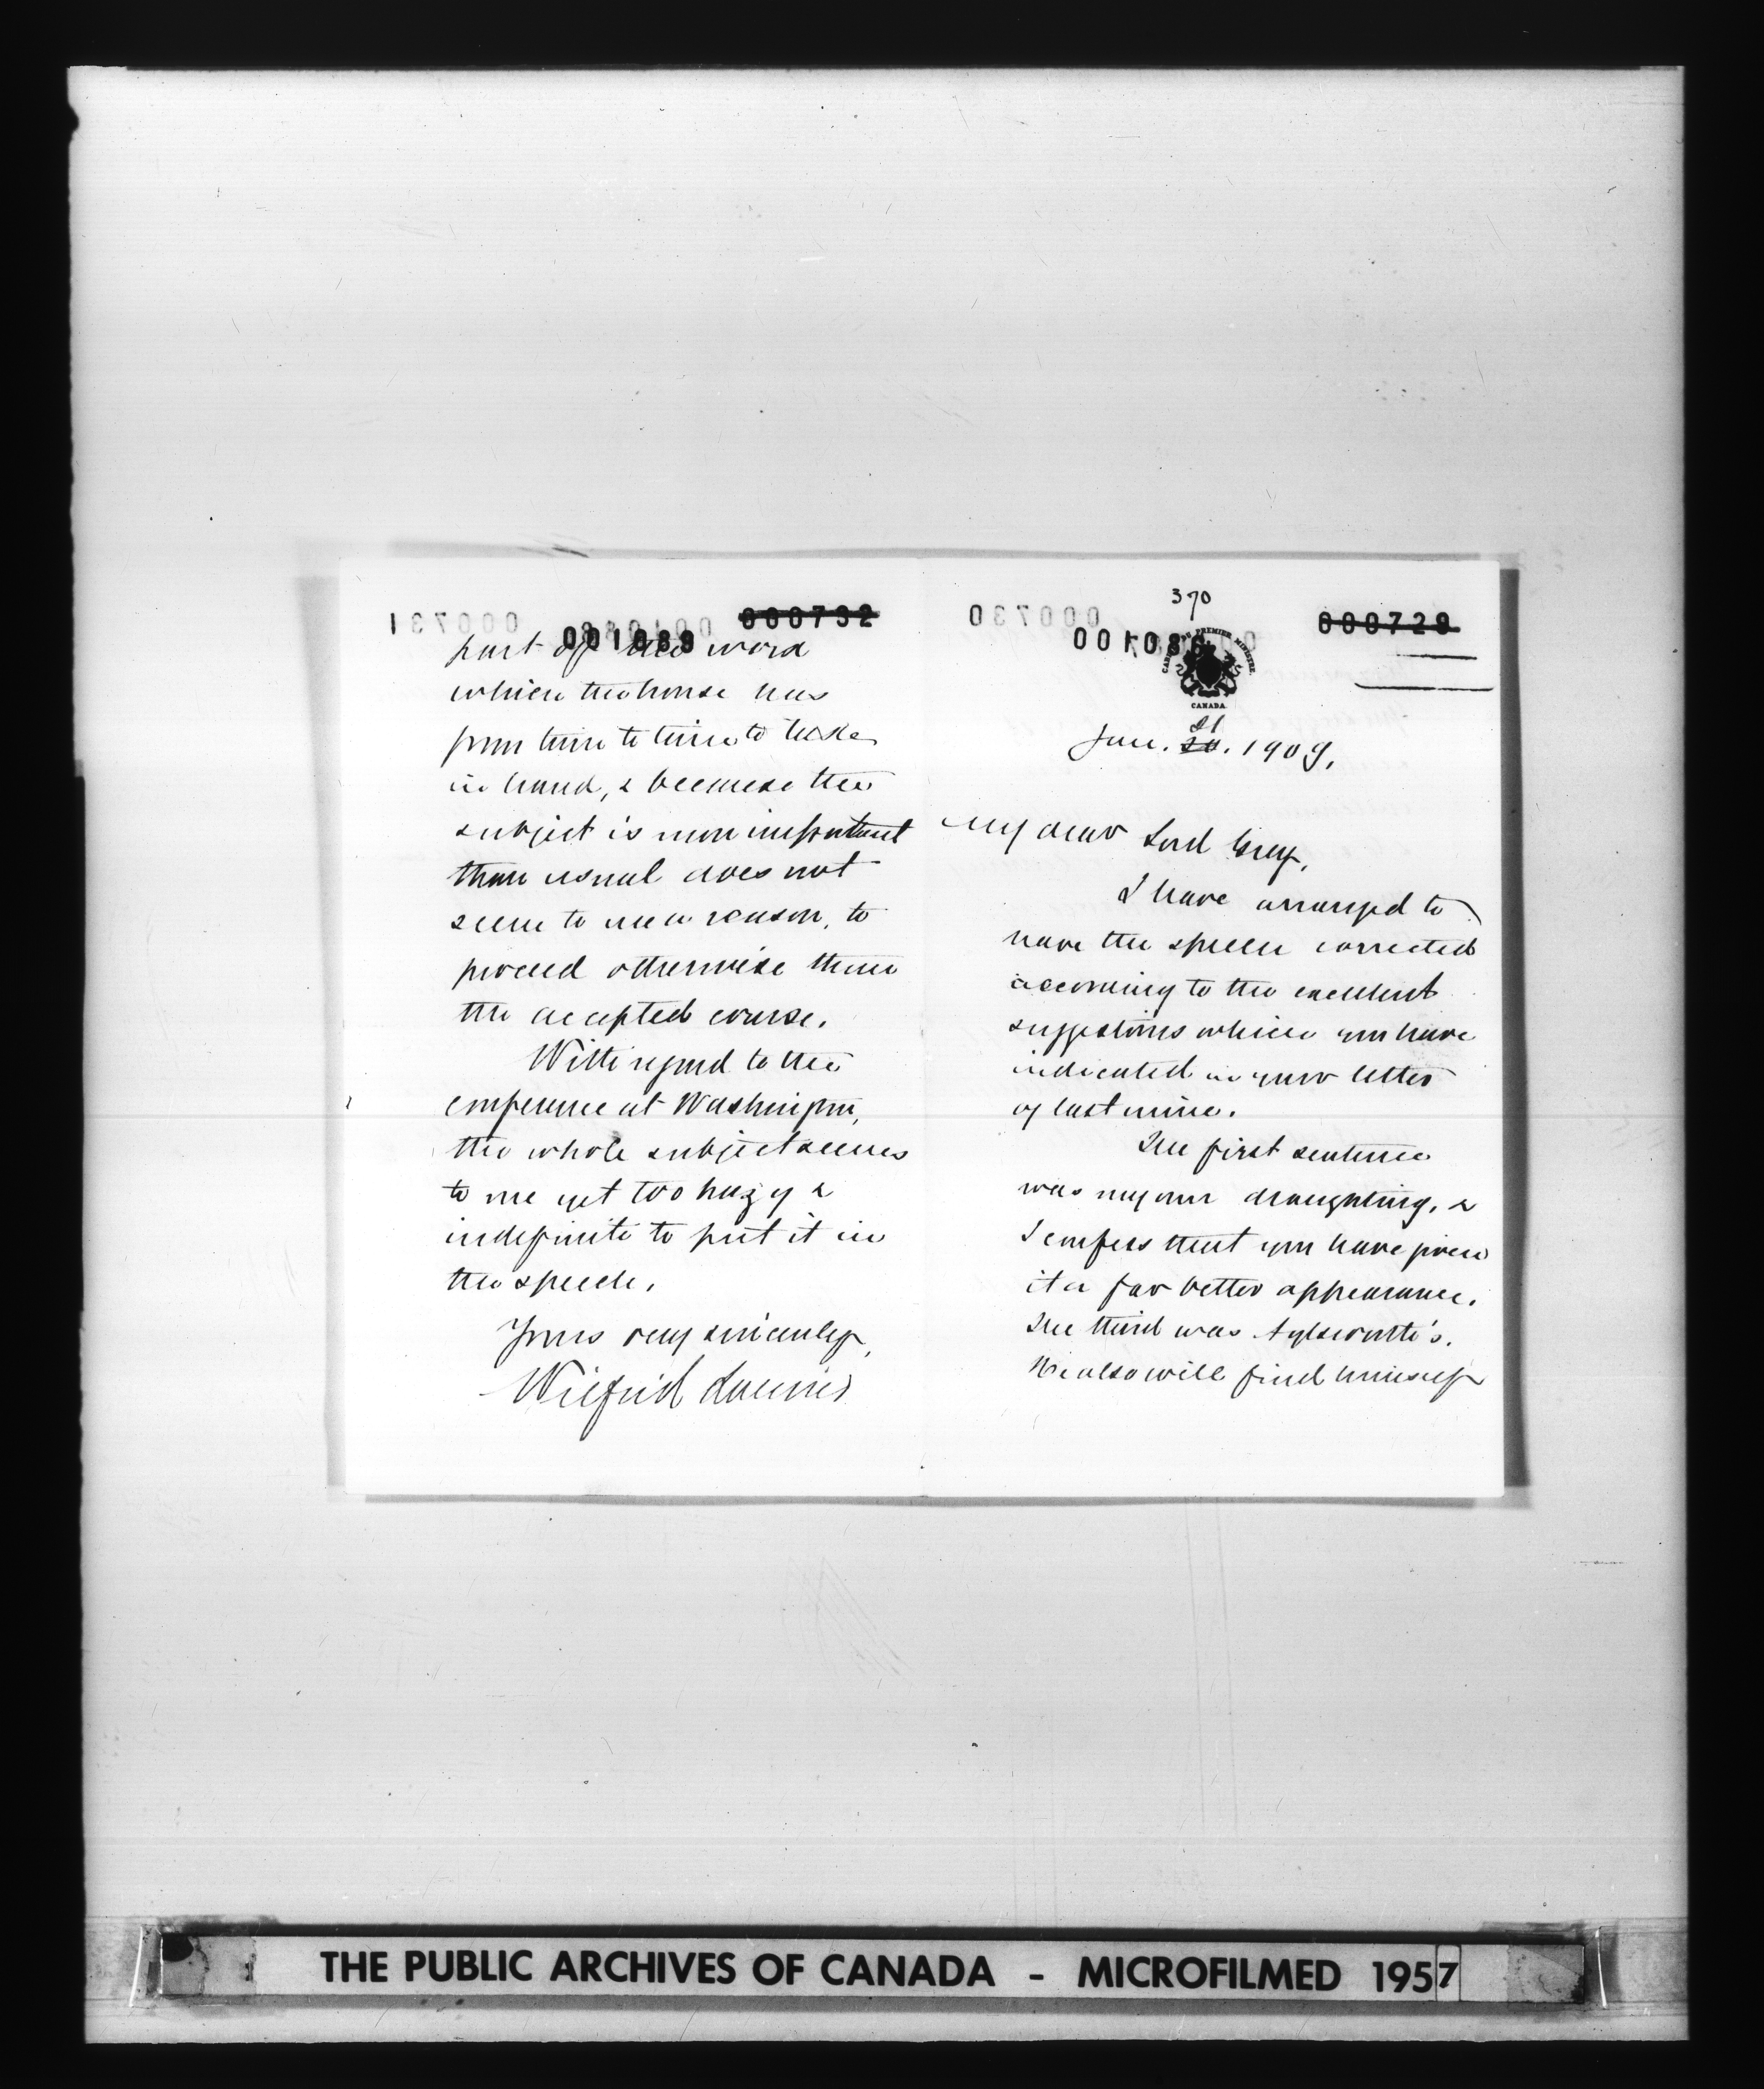 370
000729
001086
CANADA
Jan. 20. 21 1909.
My dear Lord Grey,
I have arranged to
have the speech corrected
according to the excellent
suggestions which you have
indicated in your letter
of last mine.
The first sentence
was my own draughting, &
I confess that you have given
it a far better appearance.
The third was Aylesworth's.
He also will find himself
000732
001089
000731
000730
part of the word
which the house has
from time to time to take
in hand, & because the
subject is more important
than usual does not
seem to me a reason, to
proceed otherwise than
the accepted course.
With regard to the
conference at Washington,
the whole subject seems
to me yet too hazy &
indefinite to put it in
the speech.
Yours very sincerely,
Wilfrid Laurier
THE PUBLIC ARCHIVES OF CANADA - MICROFILMED 1957